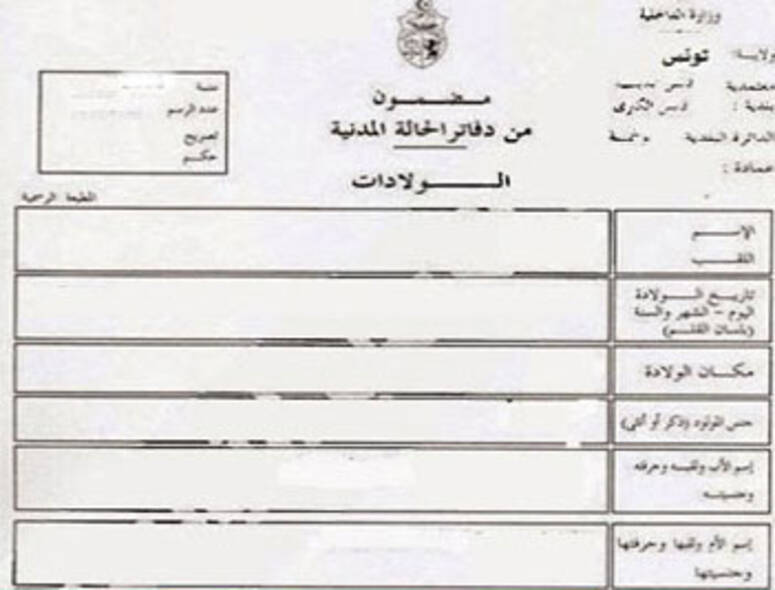 وزارة الداخلية
ولاية: تونس
معتمدية
بلدية :
الدائرة البلدية
عمادة :
مضمون
من دفاتر الحالة المدنية
الولادات
سنة
عدد الرسم
تصريح
حكم
المطبعة الرسمية
الإسم
اللقب
تاريخ الولادة
اليوم - الشهر والسنة
(بلسان القلم)
مكان الولادة
جنس المولود (ذكر أو أنثى)
إسم الأب ولقبه وحرفته
وجنسيته
إسم الأم ولقبها وحرفتها
وجنسيتها